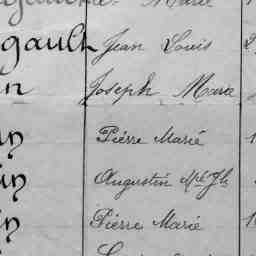 Marie
gault Jean Louis 2
in Joseph Marie
in Piérre Marié 1
in Augustin
in Pierre Marie 1